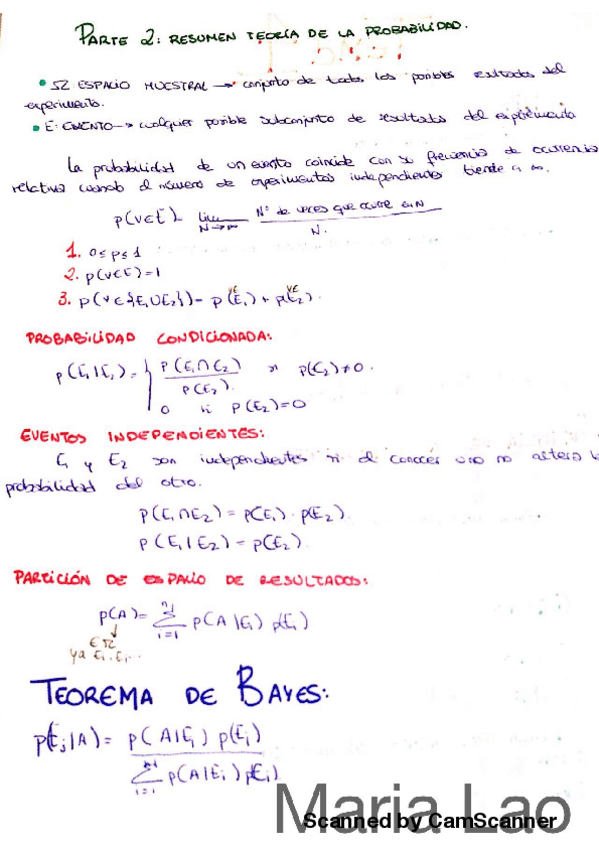 PARTE 2: RESUMEN TEORÍA DE LA PROBABILIDAD.
• Ω ESPACIO MUESTRAL → conjunto de todos los posibles resultados del
experimento.
• E: EVENTO → cualquier posible subconjunto de resultados del experimento
La probabilidad de un evento coincide con su frecuencia de ocurrencia
relativa cuando el número de experimentos independientes tiende a ∞.
P(v∈E) = lim N→∞ Nº de veces que ocurre en N / N.
1. 0≤p≤1
2. p(v∈E)=1
3. p(v∈{E₁∪E₂}) = p(E₁) + p(E₂).
PROBABILIDAD CONDICIONADA:
p(E₁|E₂) = { p(E₁∩E₂) / p(E₂) si p(E₂)≠0.
0 si p(E₂)=0
EVENTOS INDEPENDIENTES:
E₁ y E₂ son independientes si el conocer uno no altera la
probabilidad del otro.
p(E₁∩E₂) = p(E₁) · p(E₂).
p(E₁|E₂) = p(E₂).
PARTICIÓN DE ESPACIO DE RESULTADOS:
p(A) = Σ i=1 p(A|Ei) p(Ei)
∈Ω
ya Ei..Ei..
TEOREMA DE BAYES:
p(Ej|A) = p(A|Ej) p(Ej) / Σ i=1 p(A|Ei) p(Ei)
Maria Lao
Scanned by CamScanner